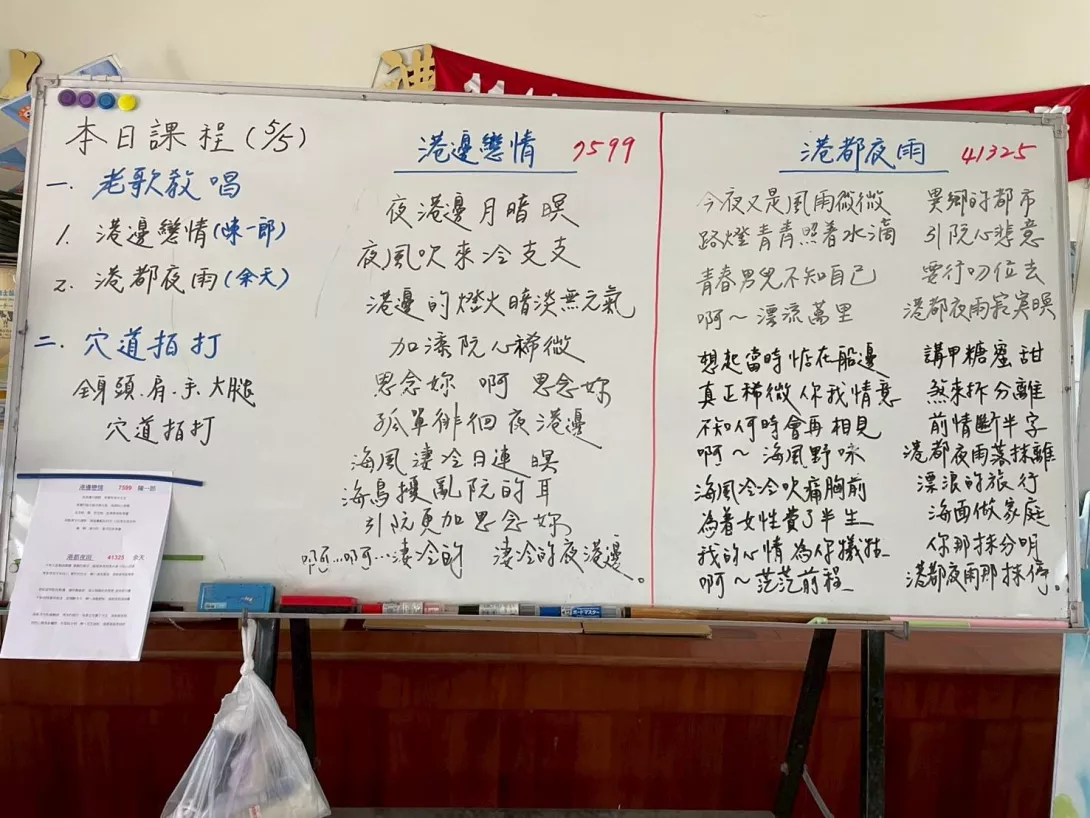 港
本日課程(5/5)
一. 老歌教唱
1. 港邊戀情(陳一郎)
2. 港都夜雨(余天)
二. 穴道拍打
全身頭.肩.手.大腿
穴道拍打
港邊戀情 7599
夜港邊月暗暝
夜風吹來冷支支
港邊的燈火暗淡無元氣
加添阮心稀微
思念妳 啊 思念妳
孤單徘徊夜港邊
海風淒冷日連暝
海鳥擾亂阮的耳
引阮更加思念妳
啊…啊…淒冷的 淒冷的夜港邊。
港都夜雨 41325
今夜又是風雨微微 異鄉的都市
路燈青青照着水滴 引阮心悲意
青春男兒不知自己 要行叨位去
啊~漂流萬里 港都夜雨寂寞暝
想起當時惦在船邊 講甲糖蜜甜
真正稀微你我情意 煞來拆分離
不知何時會再相見 前情斷半字
啊~海風野味 港都夜雨落抹離
海風冷冷吹痛胸前 漂浪的旅行
為着女性費了半生 海面做家庭
我的心情為你犧牲 你那抹分明
啊~茫茫前程 港都夜雨那抹停。
港邊戀情 7599 陳一郎
港都夜雨 41325 余天